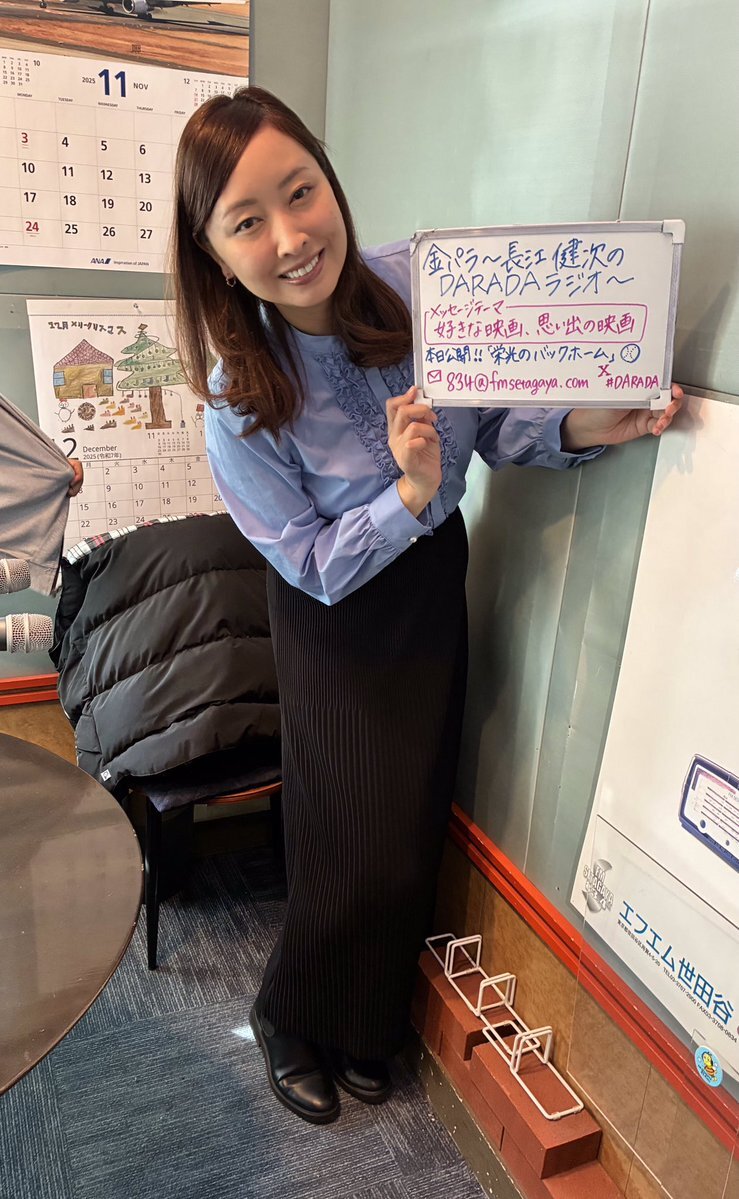 10
2025 11 NOV
12
MONDAY TUESDAY WEDNESDAY THURSDAY FRIDAY
3 4 5 6
10 11 12 13
17 18 19 20
24 25 26 27
ANA Inspiration of JAPAN
12月 メリークリスマス
11
December
2025 (令和7年)
月 火 水 木 金
15 16 17 18 19
22 23 24 25
金パラ～長江健次の
DARADAラジオ～
メッセージテーマ
好きな映画、思い出の映画
本日公開!!「栄光のバックホーム」
834@fmsetagaya.com
X
#DARADA
FM
SETAGAYA
エフエム世田谷